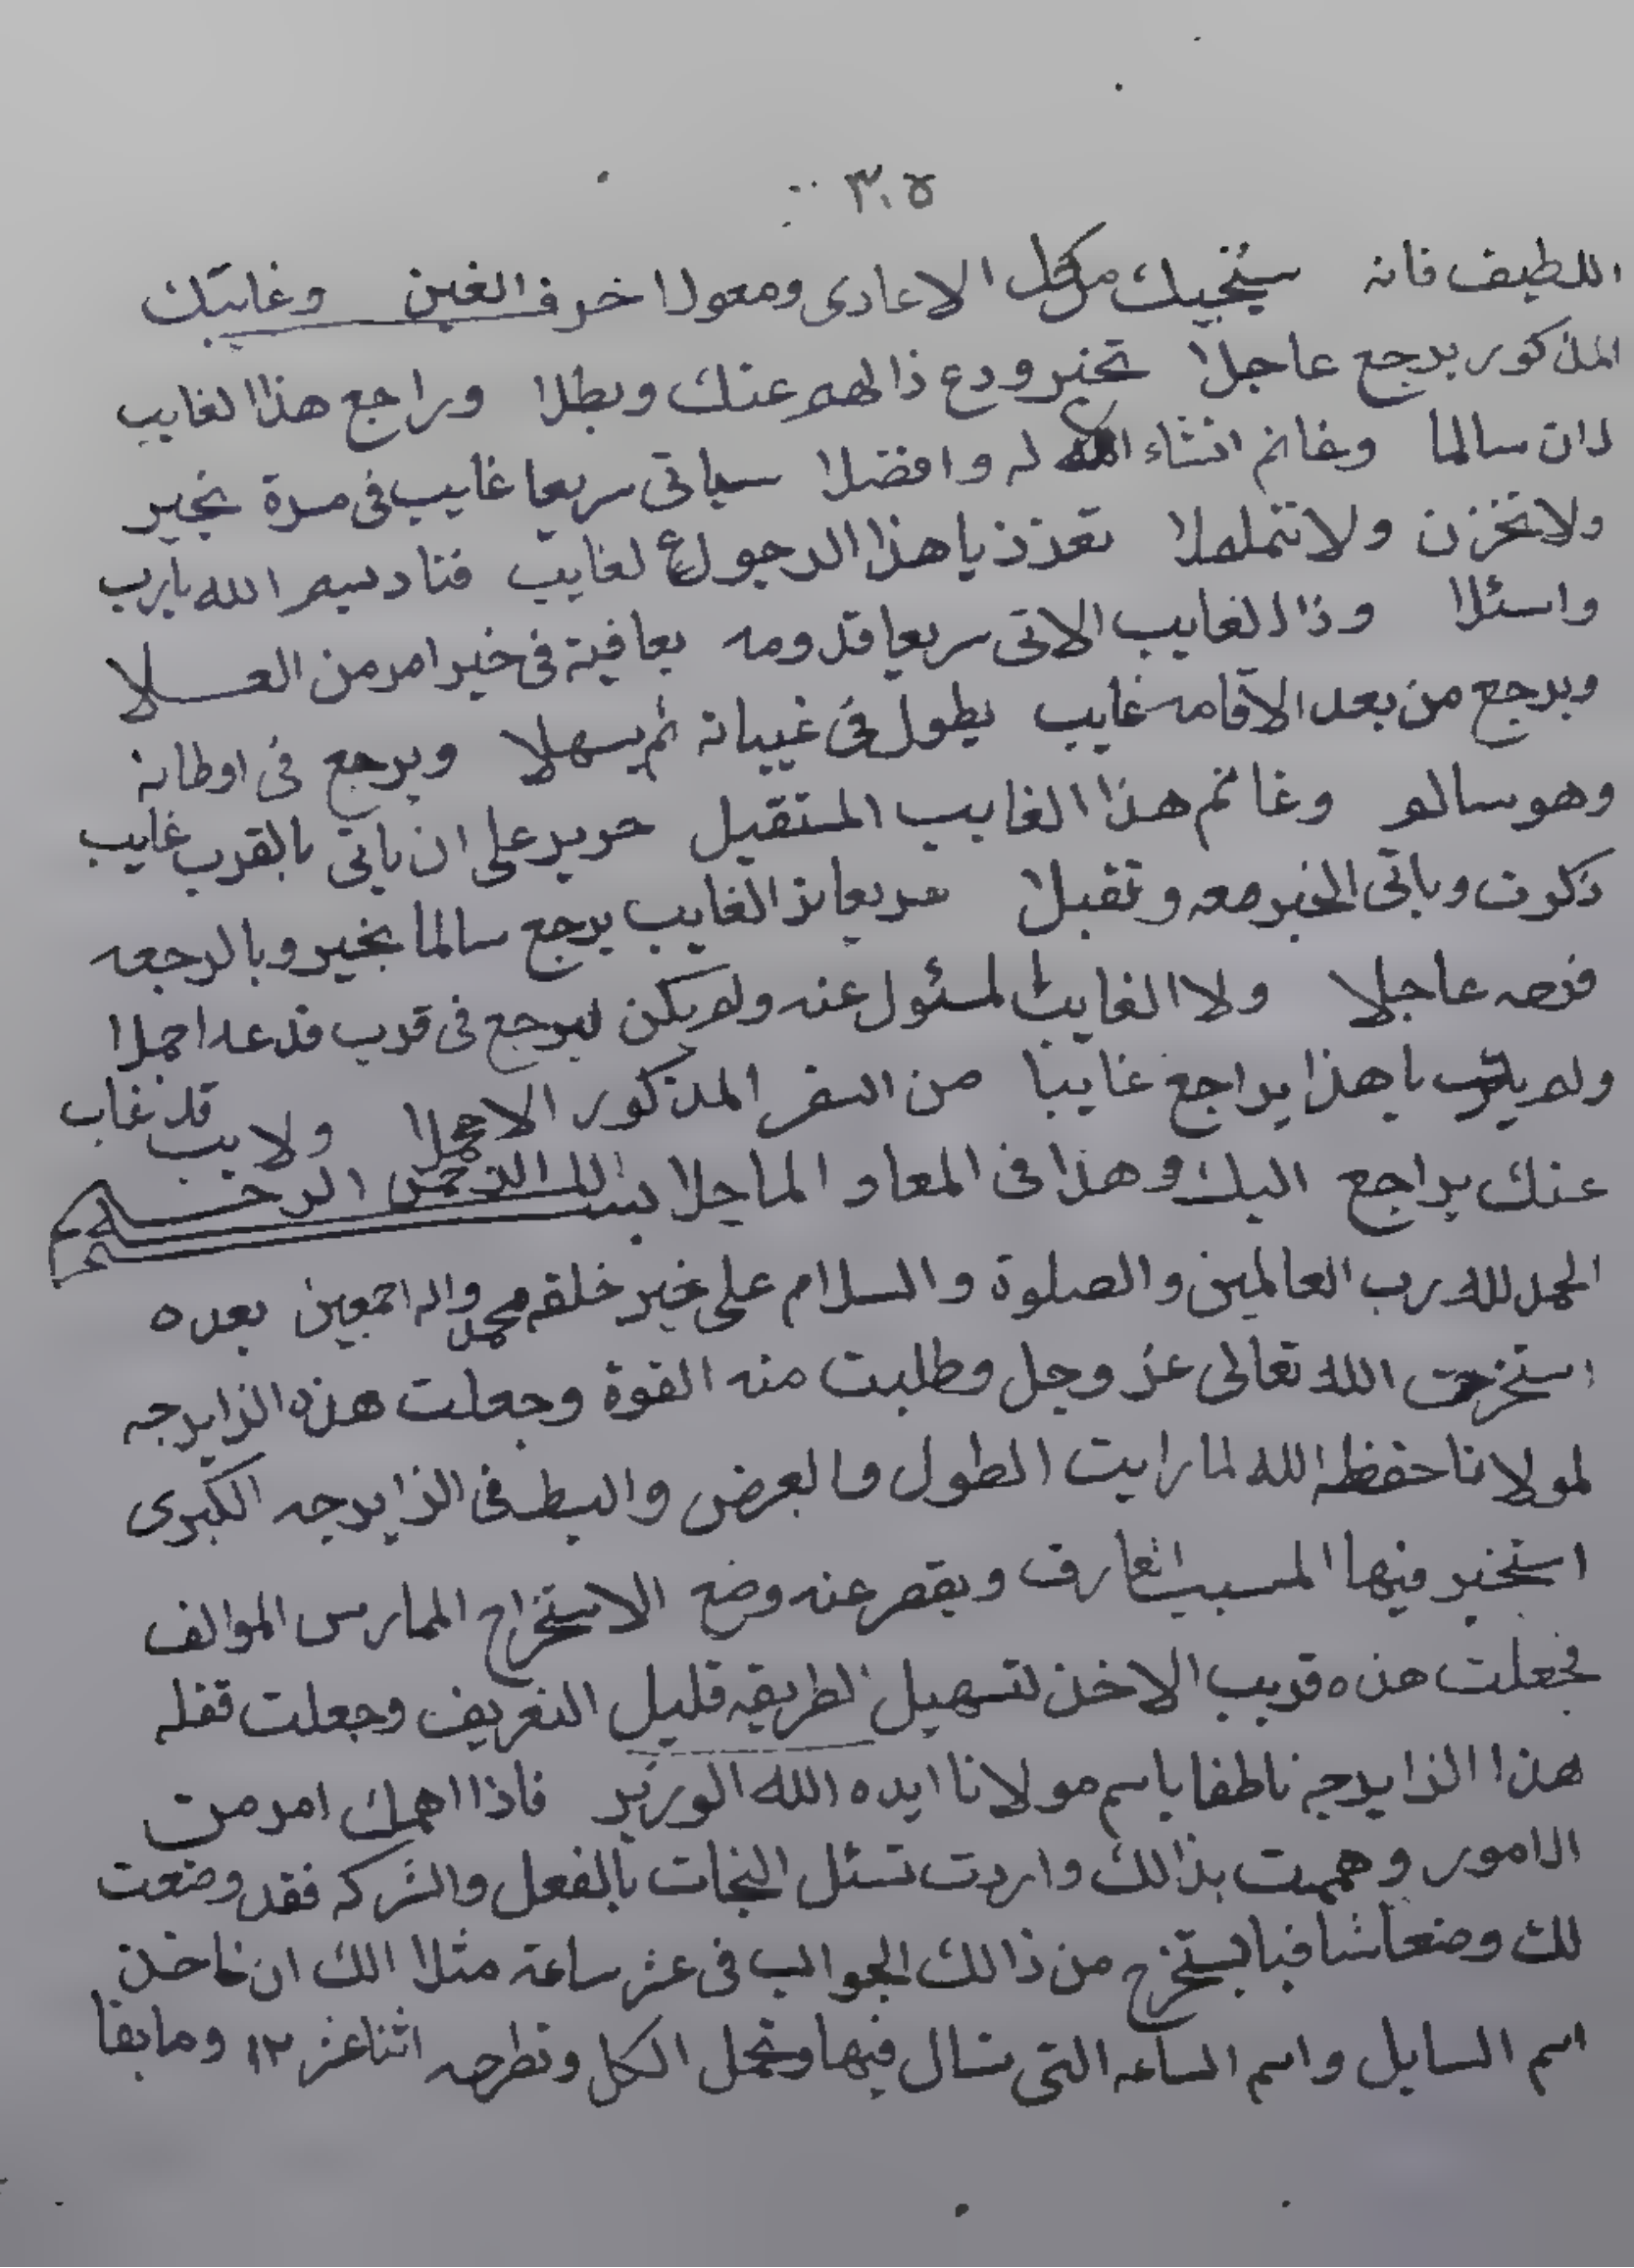 ٣٠٥
اللطيف فانه سينجيك من كل الاعادى ومعولا حرف الغين وغايبك
المذكور يرجع عاجلا بخير ودع ذا الهم عنك وبطلا وراجع هذا الغايب
لان سالما وغانم انشاء الله له وافضلا سياتى سريعا غايب فى مسرة بخير
ولا تحزن ولا تتململا تعزز يا هذا الرجوع لغايب فناد بسم الله يارب
واسئلا وذا الغايب الاتى سريعا قدومه بعافية فى خير امر من العلا
ويرجع من بعد الاقامه غايب يطول فى غيباته ثم يسهلا ويرجع فى اوطانه
وهو سالم وغانم هذا الغايب المتقبل حرير على ان ياتى بالقرب غايب
ذكرت وياتى الخير معه وتقبلا سريعا ذا الغايب يرجع سالما بخير وبالرجعه
فرحه عاجلا ولا الغايب المسئول عنه ولم يكن ليرجع فى قرب فدعه اجملا
ولم يا هذا يراجع غايبا من السفر المذكور الا ولا قد غاب
عنك يراجع اليك وهذا فى المعاد الماجلا بسم الله الرحمن الرحيم
الحمد لله رب العالمين والصلوة والسلام على خير خلقه محمد واله اجمعين بعده
استخرت الله تعالى عز وجل وطلبت منه القوة وجعلت هذه الزايرجه
لمولانا حفظه الله لما رايت الطول والعرض والبسط فى الزايرجه الكبرى
استخير فيها المسبب العارف ويقصر عنه وضع الاستخراج الممارس الموالف
فجعلت هذه قريب الاخذ لتسهيل الطريقه قليل التعريف وجعلت قفله
هذا الزايرجه ناطقا باسم مولانا ايده الله الوزير فاذا اهمك امر من
الامور وهممت بذالك واردت تسئل النجات بالفعل والشركه فقد وضعت
لك وضعا شافيا يستخرج من ذالك الجواب فى عشر ساعة مثلا الك ان تاخذ
اسم السايل واسم الساعه التى تسال فيها وتجمل الكل وتطرحه اثنا عشر ١٢ وما بقا